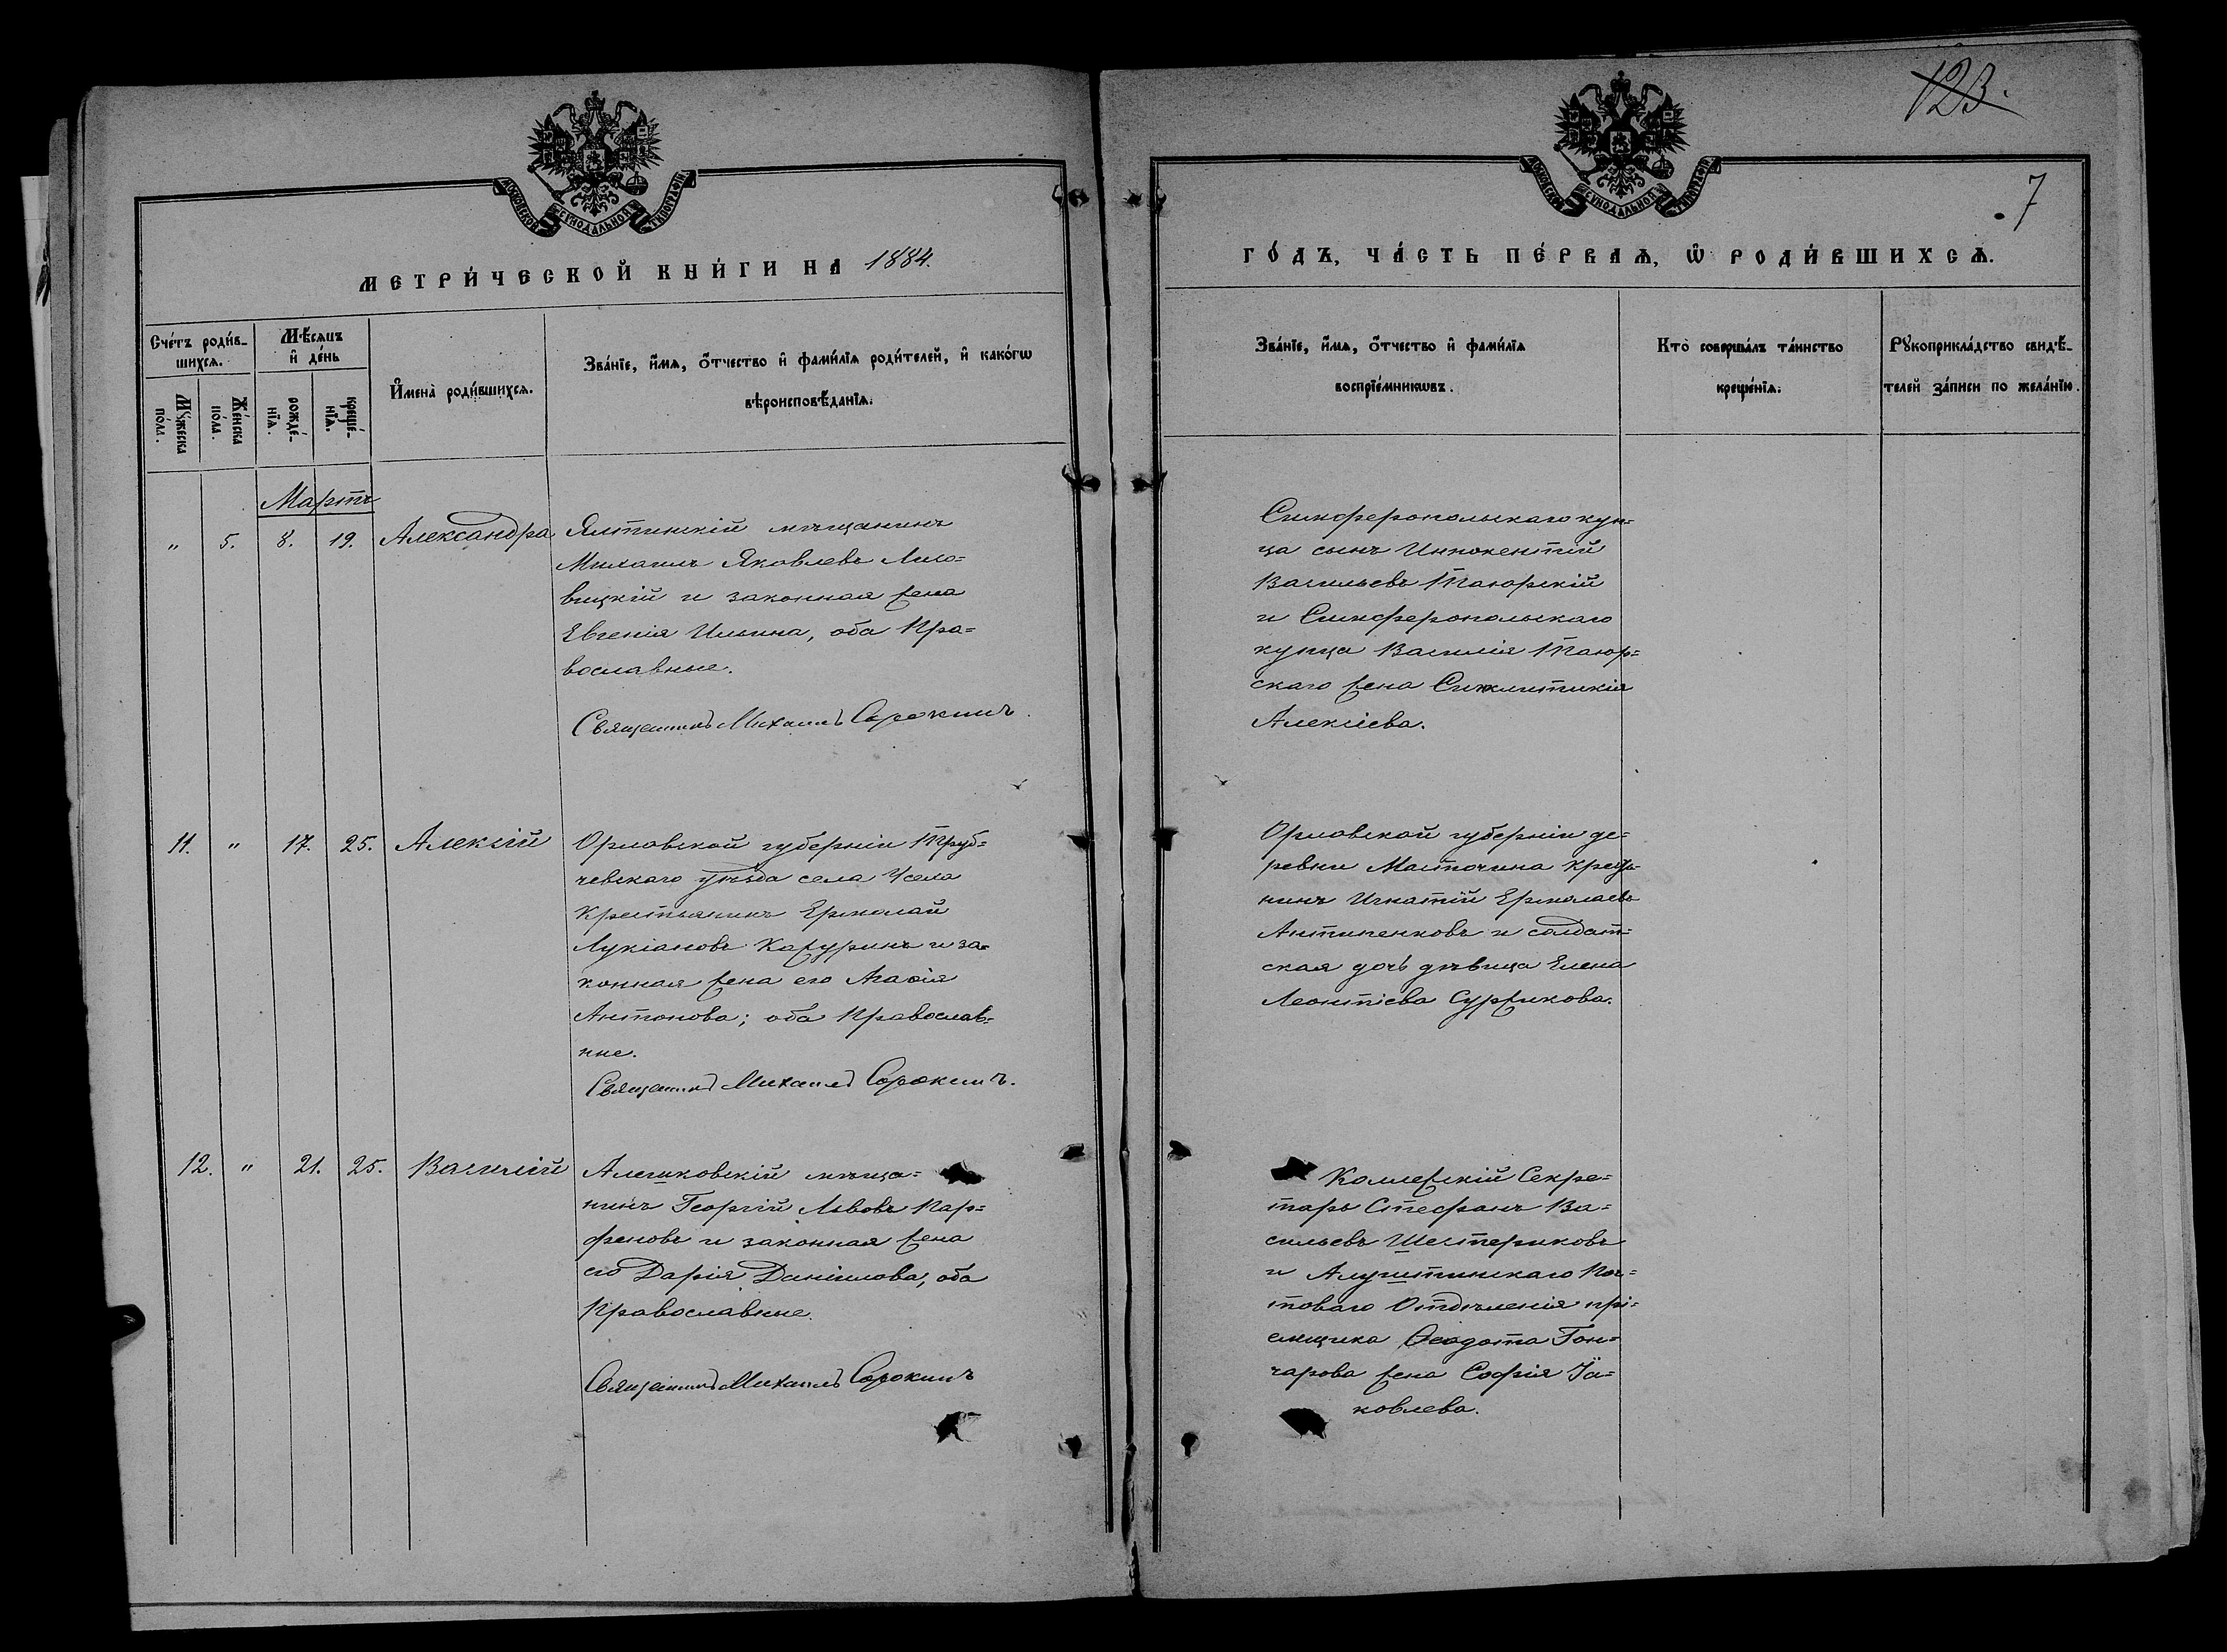 123.
7
МОСКОВСКОЙ СѴНОДАЛЬНОЙ ТИПОГРАФІИ
МОСКОВСКОЙ СѴНОДАЛЬНОЙ ТИПОГРАФІИ
МЕТРИ́ЧЕСКОЙ КНИ́ГИ НА 1884.
ГО́ДЪ, ЧА́СТЬ ПЕ́РВАѦ, Ѡ РОДИ́ВШИХСѦ.
Сче́тъ роди́в-
шихсѧ.
Мꙋ́жеска по́ла.
Же́нска по́ла.
Мѣ́сѧцъ
и де́нь
рожде́-
нїѧ.
креще́-
нїѧ.
Имена̀ роди́вшихсѧ.
Зва́нїе, и́мѧ, о́тчество и фами́лїѧ роди́телей, и како́гѡ
вѣроисповѣ́данїѧ.
Зва́нїе, и́мѧ, о́тчество и фами́лїѧ
воспрїе́мникѡвъ.
Кто̀ соверша́лъ та́инство
креще́нїѧ.
Рꙋкоприкла́дство свидѣ́-
телей за́писи по жела́нїю.
Мартъ
" 5. 8. 19. Александра
Ялтинскій мѣщанинъ
Михаилъ Яковлевъ
и законная жена
Евгенія Ильина, оба Пра=
вославные.
Священникъ Михаилъ Сорокинъ.
Симферопольскаго куп=
ца сынъ Иннокентій
Васильевъ Таюрскій
и Симферопольскаго
купца Василія Таюр=
скаго жена Синклитикія
Алексіева.
11. " 17. 25. Алексій
Орловской губерніи Труб=
чевскаго уѣзда села Усела
Крестьянинъ Ермолай
Лукіановъ Кажуринъ и за=
конная жена его Агаѳія
Антонова; оба Православ=
ные.
Священникъ Михаилъ Сорокинъ.
Орловской губерніи де=
ревни Масточина
нинъ Игнатій Ермолаевъ
Антипенковъ и солдат=
ская дочь дѣвица Елена
Леонтіева Суржикова.
12. " 21. 25. Василій
Алешковскій мѣща=
нинъ Георгій Львовъ Пар=
феновъ и законная жена
его Дарія Даніилова, оба
Православные.
Священникъ Михаилъ Сорокинъ
Коллежскій Секре=
тарь Стефанъ Ва=
сильевъ Шестериковъ
и Алуштинскаго Поч=
товаго Отдѣленія прі=
емщика Ѳеодота Гон=
чарова жена Софія Іа=
ковлева.